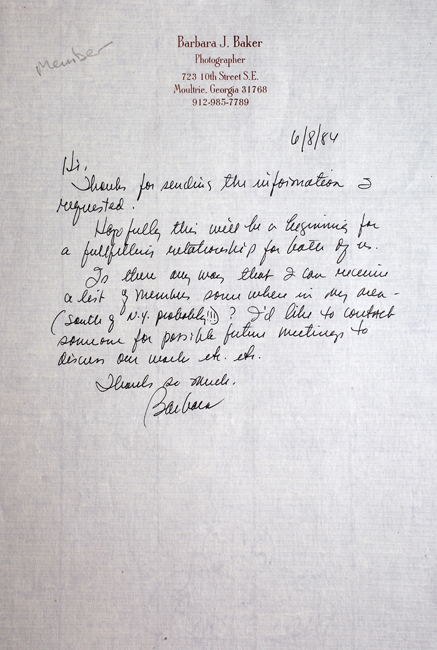 Member
Barbara J. Baker
Photographer
723 10th Street S.E.
Moultrie, Georgia 31768
912-985-7789
6/8/84
Hi,
Thanks for sending the information I
requested.
Hopefully this will be a beginning for
a fullfilling relationship for both of us.
Is there any way that I can receive
a list of members some where in my area -
(South of N.Y. probably!!!) ? I'd like to contact
someone for possible future meetings to
discuss our work etc. etc.
Thanks so much.
Barbara